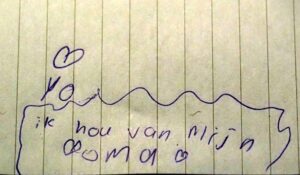 ik hou van mijn
oma